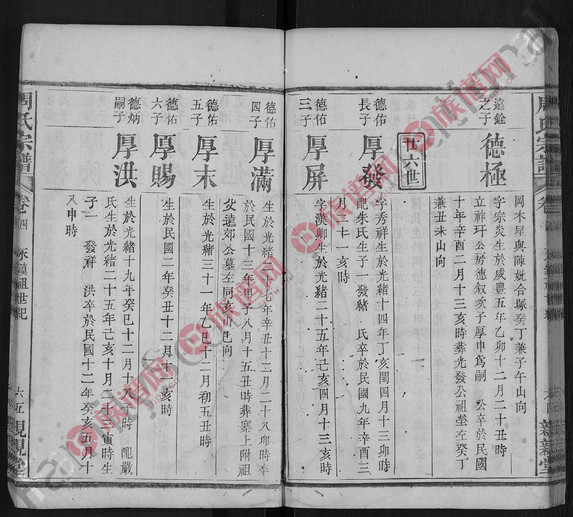 周氏宗譜
卷
親親堂
岡木星與陳姚合塚癸丁兼子午山向
遠銓
之子
德極
字宗炎生於咸豐五年乙卯十二月二十丑時
立祥玕公房德叙次子厚申爲嗣 公卒於民國
十年辛酉二月十三亥時葬光發公祖塋左癸丁
兼丑未山向
廿六世
德佑
長子
厚發
字秀祥生於光緒十三年丁亥閏四月十三卯時
配朱氏生子一發緒 氏卒於民國九年辛酉三
月二十一亥時
德佑
三子
厚屏
字漢卿生於光緒二十五年己亥四月十三亥時
德佑
四子
厚滿
生於光緒二十七年辛丑十二月二十八卯時卒
於民國十三年甲子八月十五丑時葬寨上附祖
父遠郊公墓左同亥山巳向
德佑
五子
厚末
生於光緒三十一年乙巳十二月初五丑時
德佑
六子
厚賜
生於民國二年癸丑十二月二十亥時
德炳
嗣子
厚洪
生於光緒十九年癸巳十二月十八時 配嚴
氏生於光緒二十五年己亥十月二十二寅時生
子一 發祥 洪卒於民國十二年癸亥五月十
八申時
周氏宗譜
卷四
永鎮祖世紀
六五
親親堂
族譜网